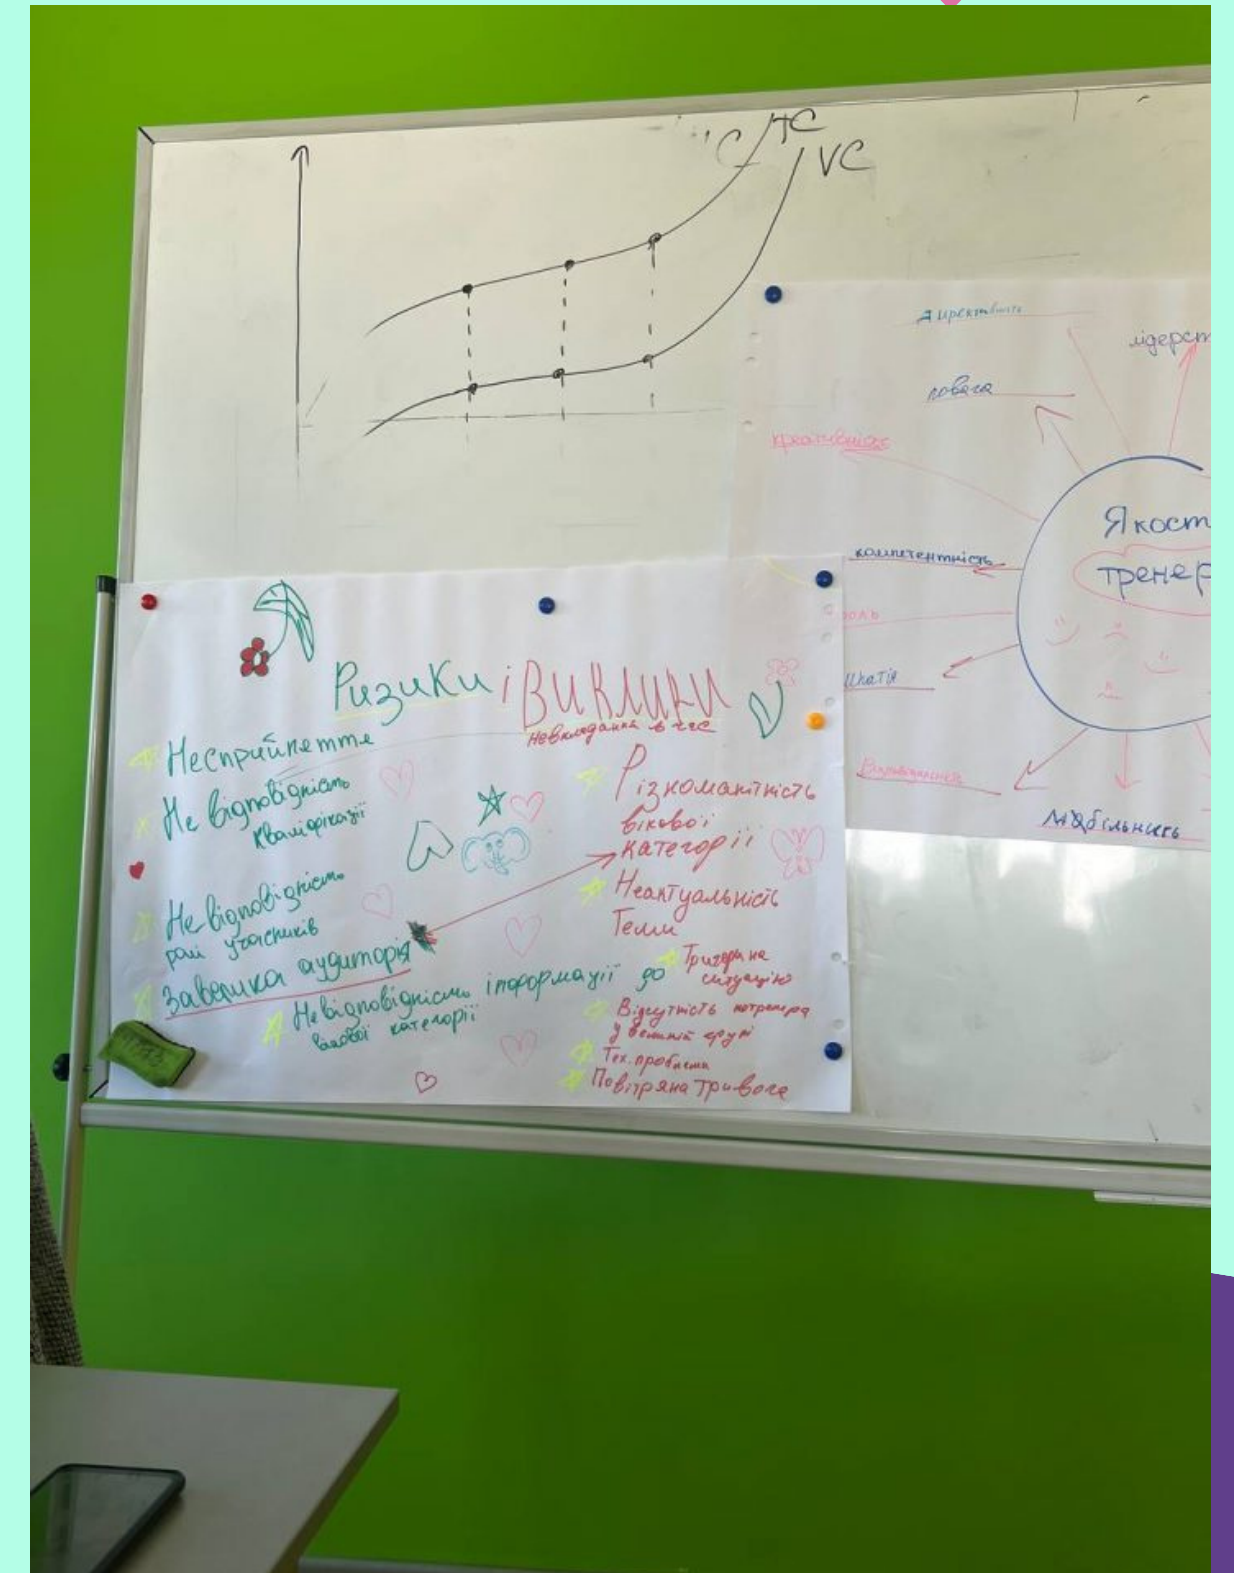 TC
VC
директивність
лідерст
повага
креативність
Якост
тренер
компетентність
мобільність
Ризики і Виклики
невкладання в час
Несприйняття
Не відповідність
кваліфікації
Не відповідність
учасників
Завелика аудиторія
Невідповідність інформації до
вікової категорії
Різноманітність
вікової
категорії
Неактуальність
Теми
Тригери на
ситуацію
Відсутність котренера
у великій групі
Тех. проблеми
Повітряна тривога